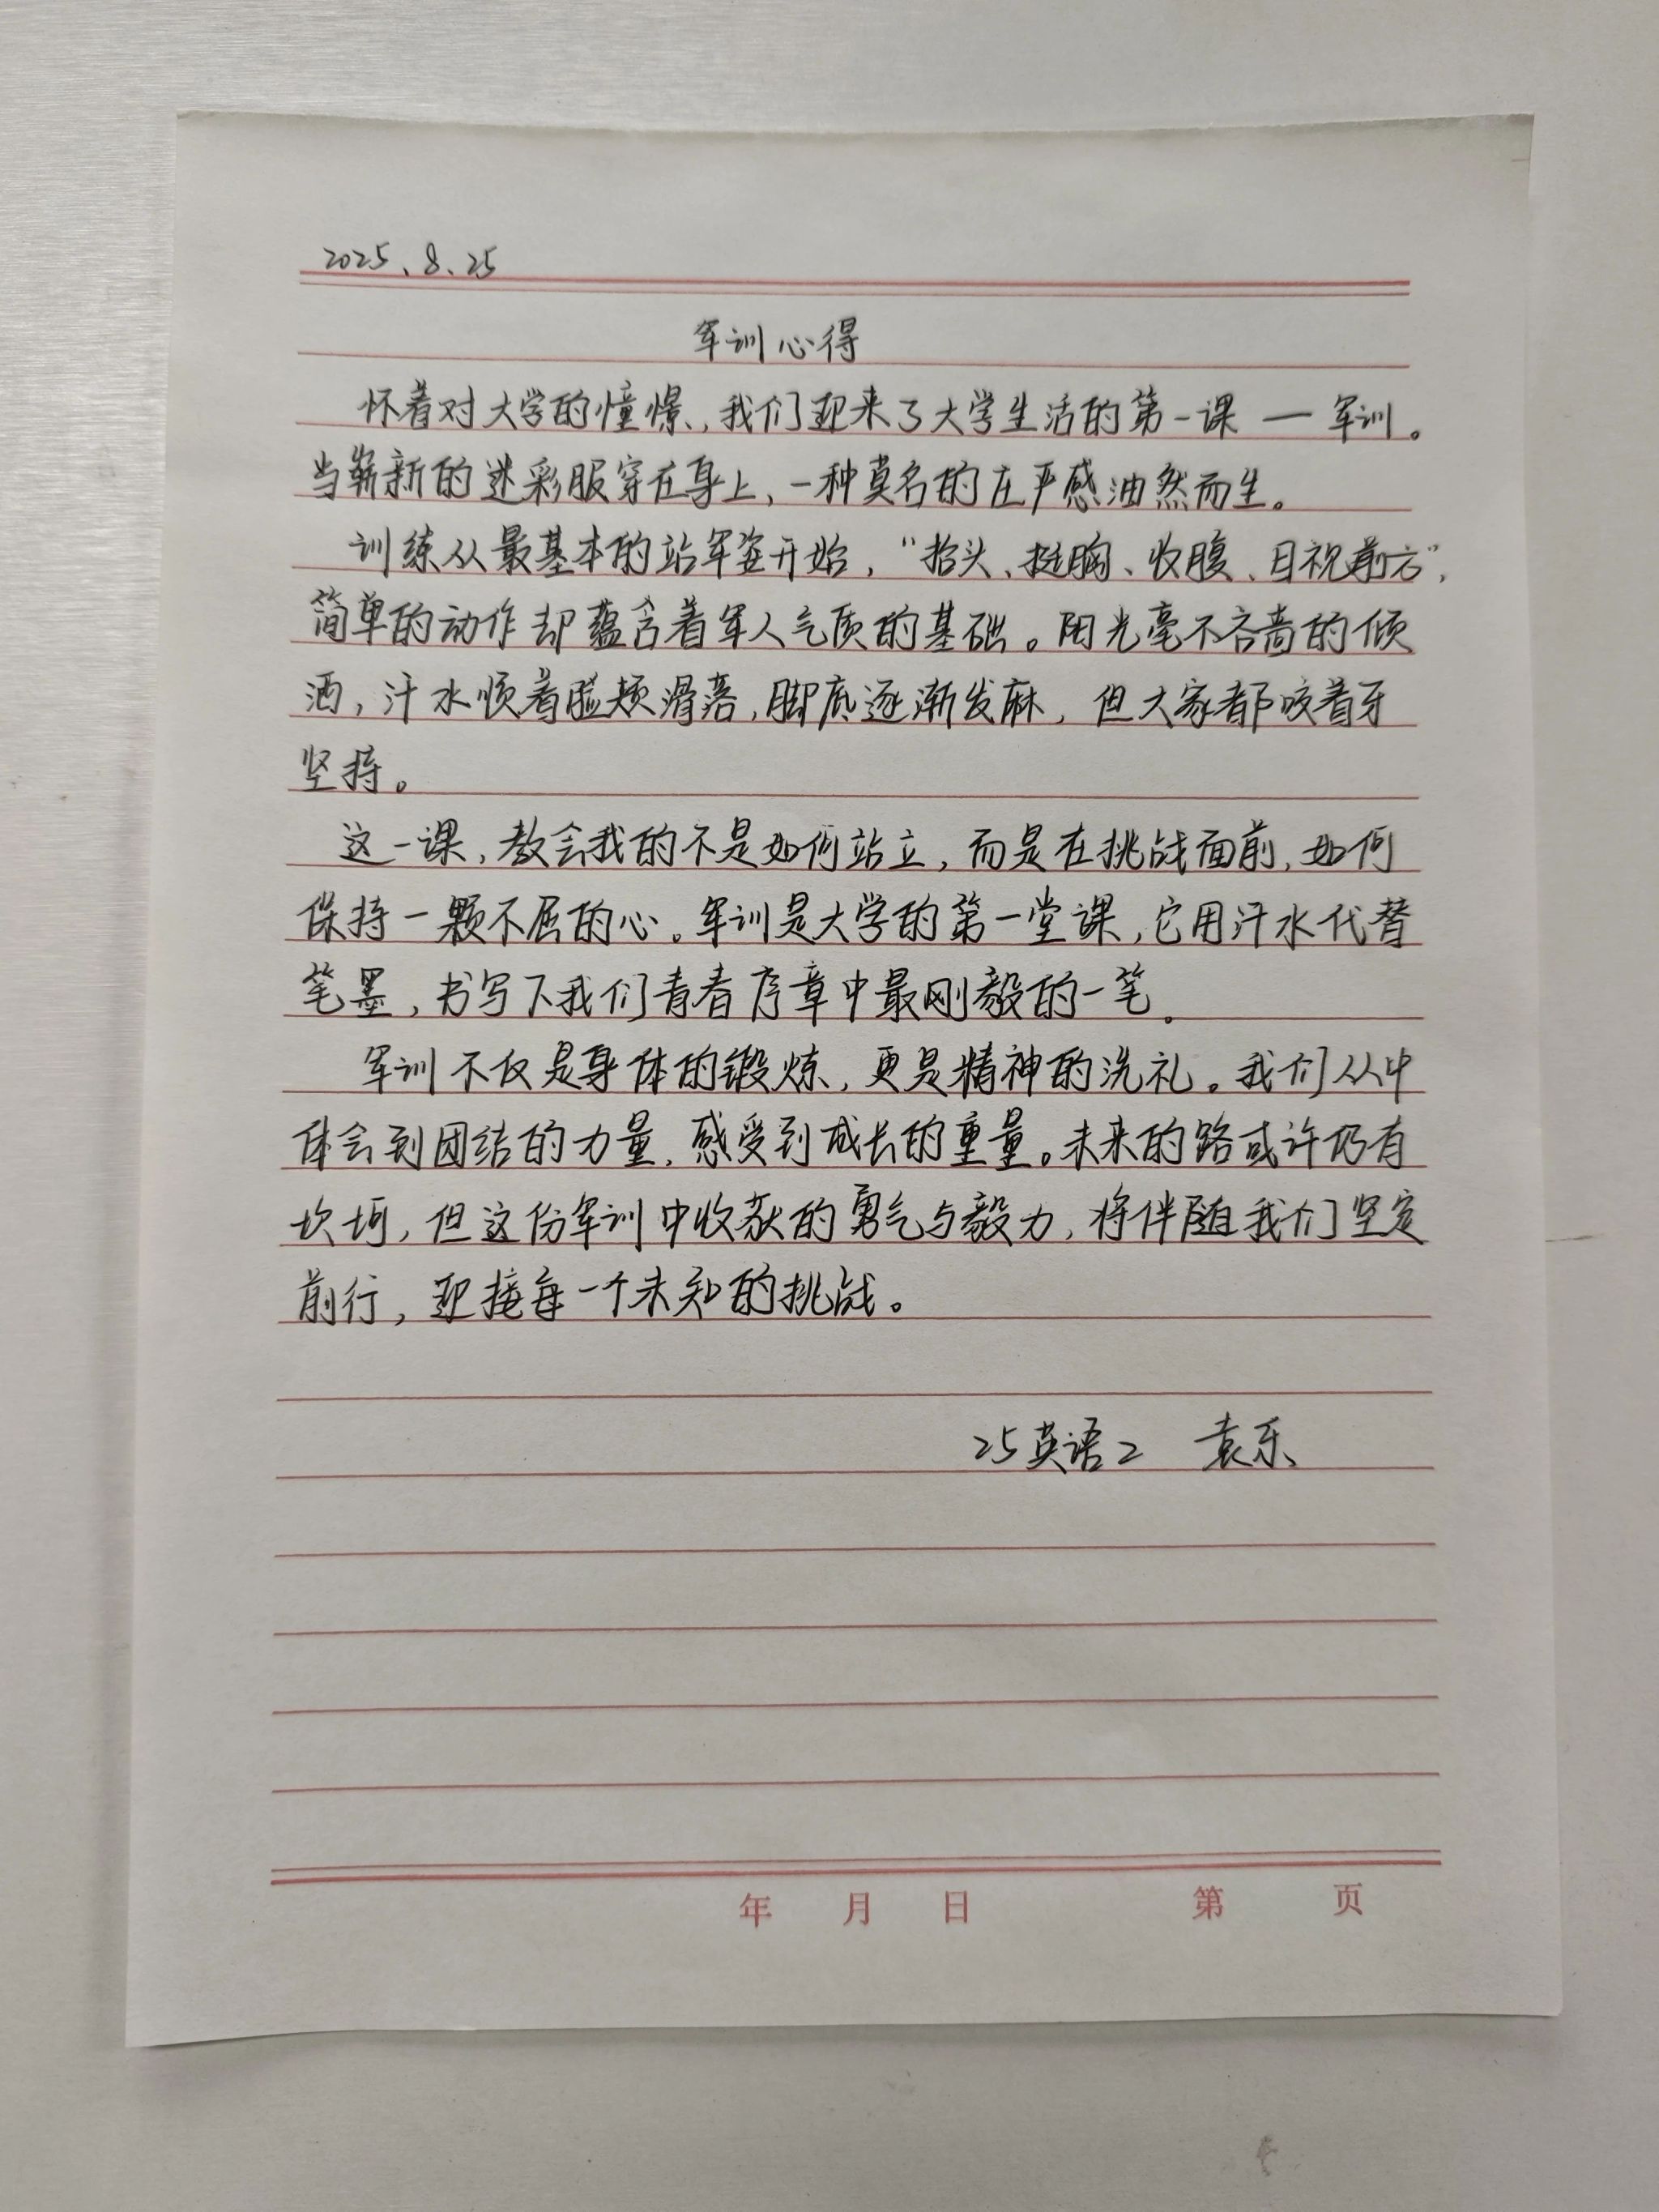 2025、8、25
军训心得
怀着对大学的憧憬，我们迎来了大学生活的第一课 — 军训。
当崭新的迷彩服穿在身上，一种莫名的庄严感油然而生。
训练从最基本的站军姿开始，“抬头、挺胸、收腹、目视前方”，
简单的动作却蕴含着军人气质的基础。阳光毫不吝啬的倾
洒，汗水顺着脸颊滑落，脚底逐渐发麻，但大家都咬着牙
坚持。
这一课，教会我的不是如何站立，而是在挑战面前，如何
保持一颗不屈的心。军训是大学的第一堂课，它用汗水代替
笔墨，书写下我们青春序章中最刚毅的一笔。
军训不仅是身体的锻炼，更是精神的洗礼。我们从中
体会到团结的力量，感受到成长的重量。未来的路或许仍有
坎坷，但这份军训中收获的勇气与毅力，将伴随我们坚定
前行，迎接每一个未知的挑战。
25英语2 袁乐
年 月 日 第 页